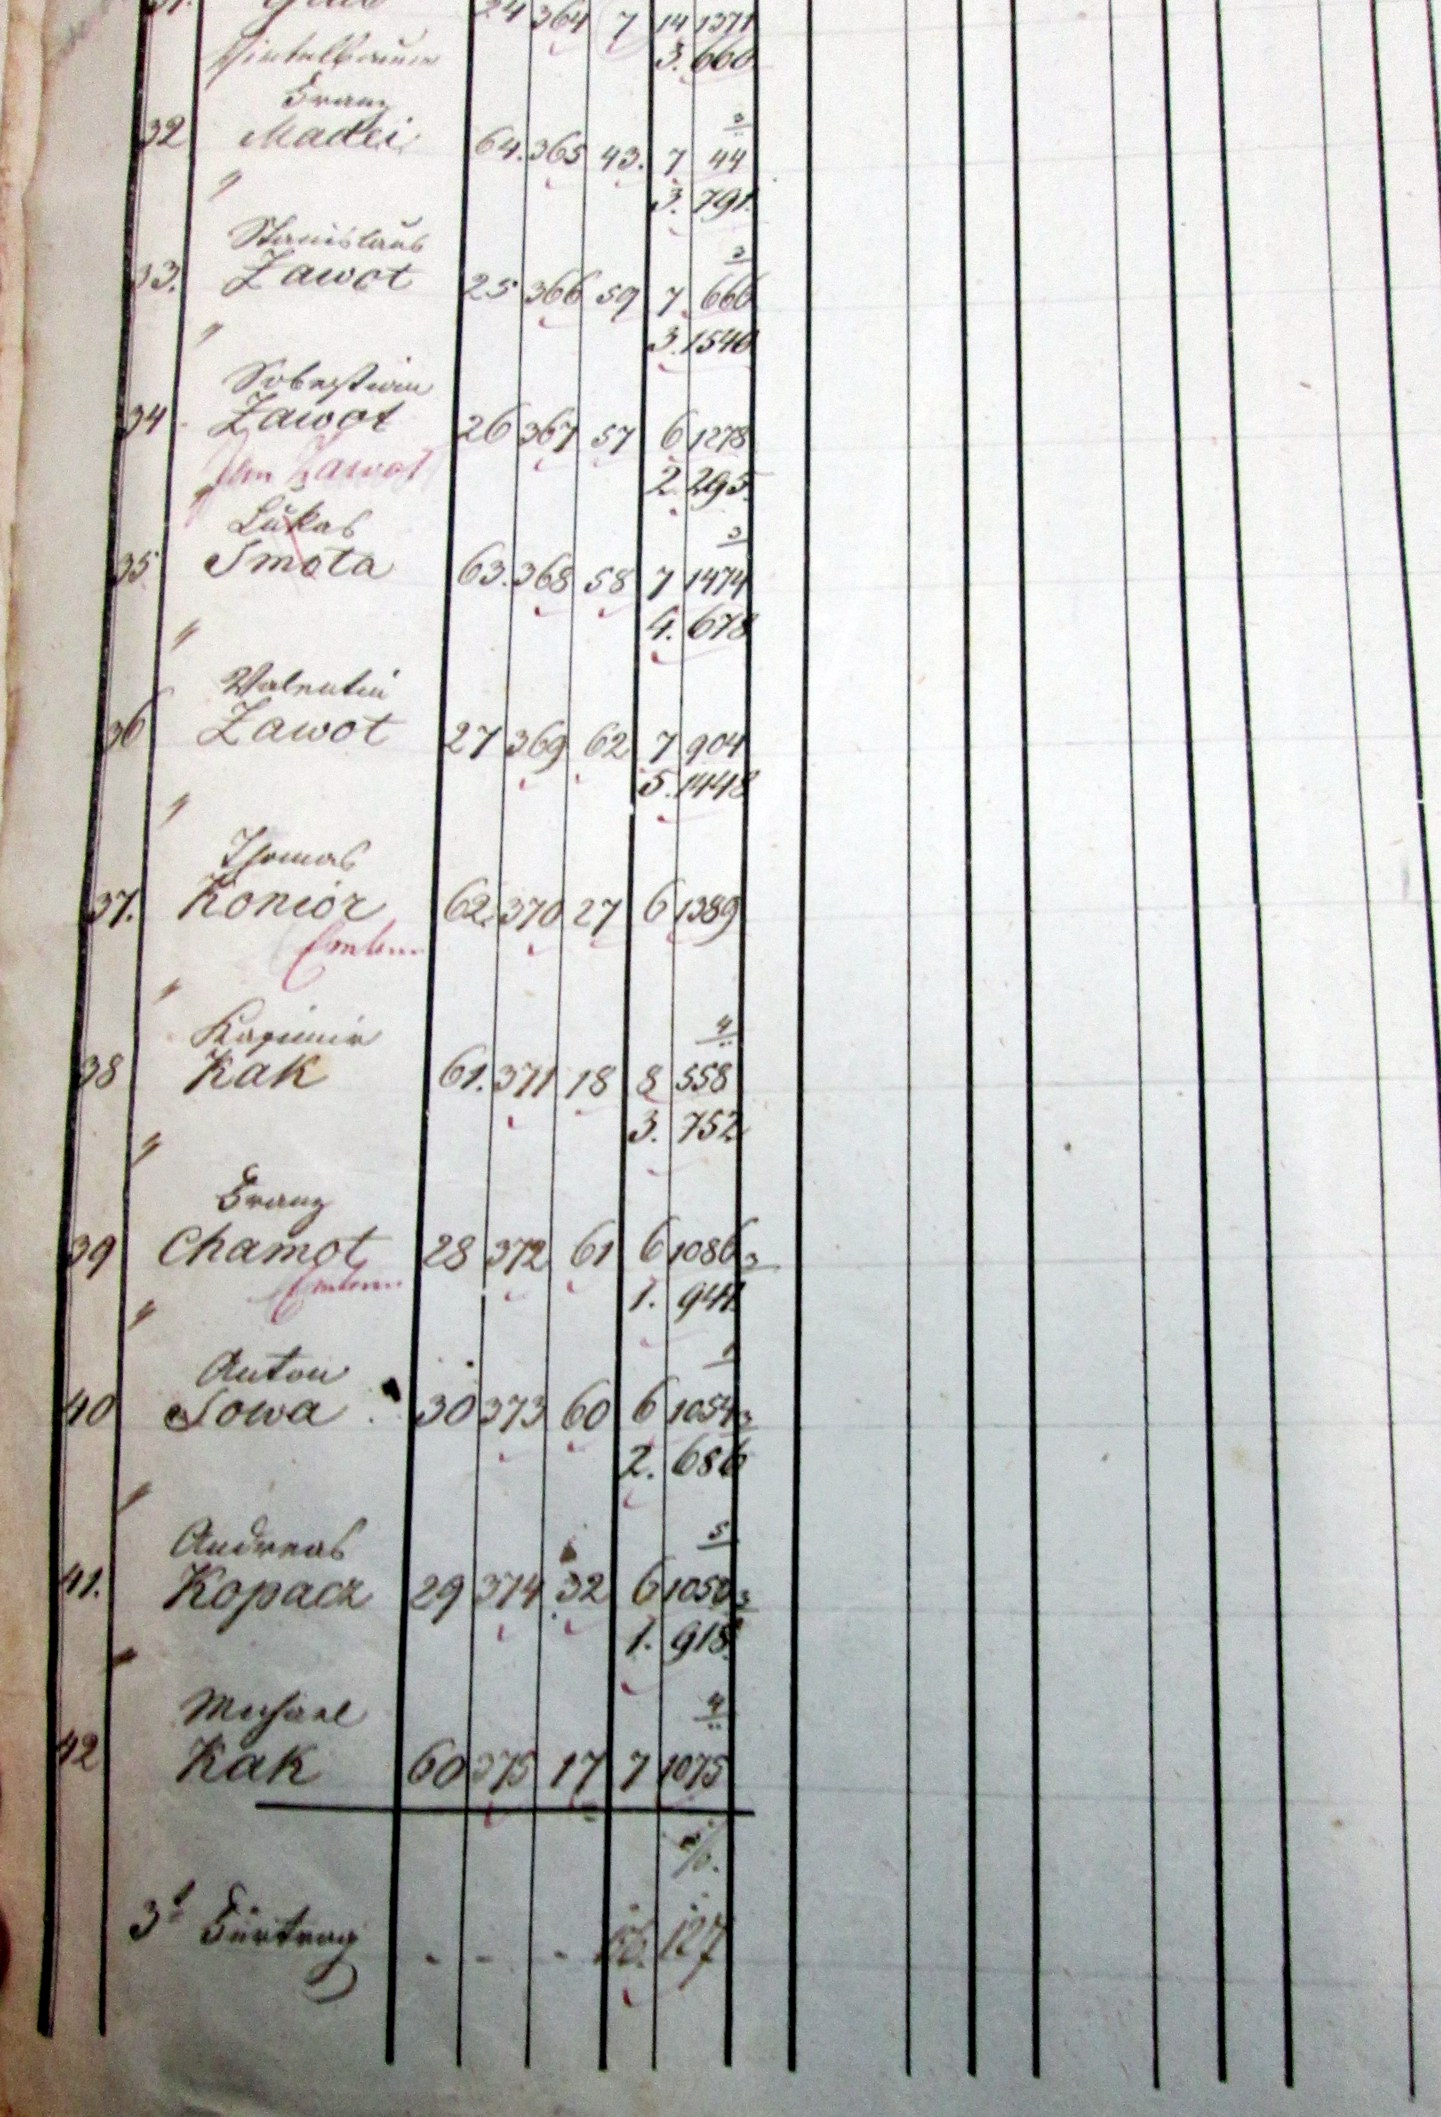 24 364 7 14 1371
3. 660
Franz
32 Madei 64. 365 43. 7 44
" 3. 791.
Stanislaus
33. Zawot 25 366 59 7 666
" 3. 1546
Sebastian
34 Zawot 26 367 57 6 1278
Jan Zawot
" 2. 295.
Lukas 3
35 Smota 63. 368 58 7 1474
" 4. 678
Valentin
36 Zawot 27 369 62 7 904
" 5. 1448
Thomas
37. Konior 62. 370 27 6 1389
"
Kasimir 4
38 Kak 61. 371 18 8 558
" 3. 752
Franz
39 Chamot 28 372 61 6 1086 3
" 1. 941.
Anton
40 Sowa 30 373 60 6 1054 3
" 2. 686
Andreas 5
41. Kopacz 29 374 32 6 1050 3
" 1. 918.
Michael 4
42 Kak 60 375 17 7 1075
Fürtrag - - - 127